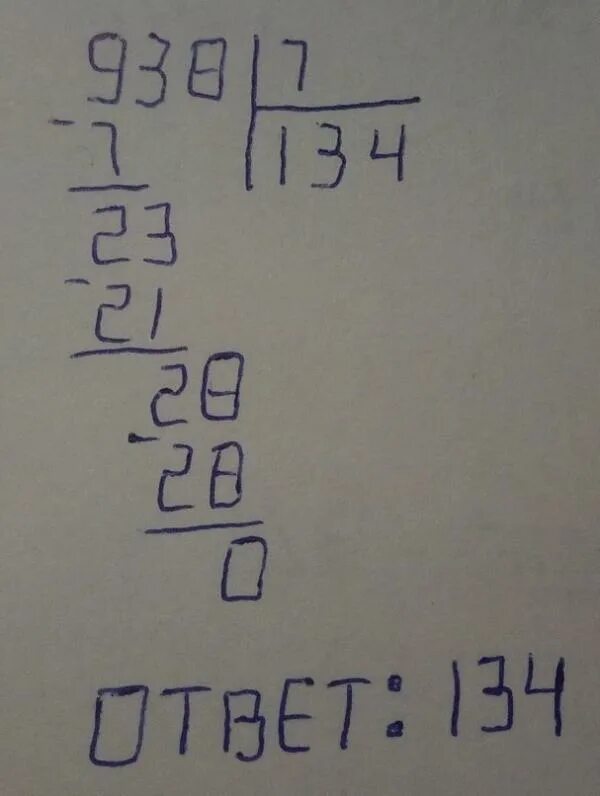 938 | 7
- 7 | 134
23
- 21
28
- 28
0
ОТВЕТ: 134